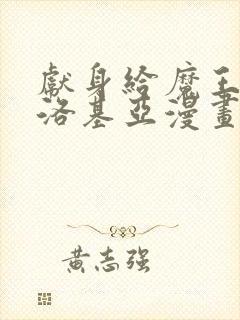 獻身給魔王
洛基亞漫畫
黃志强